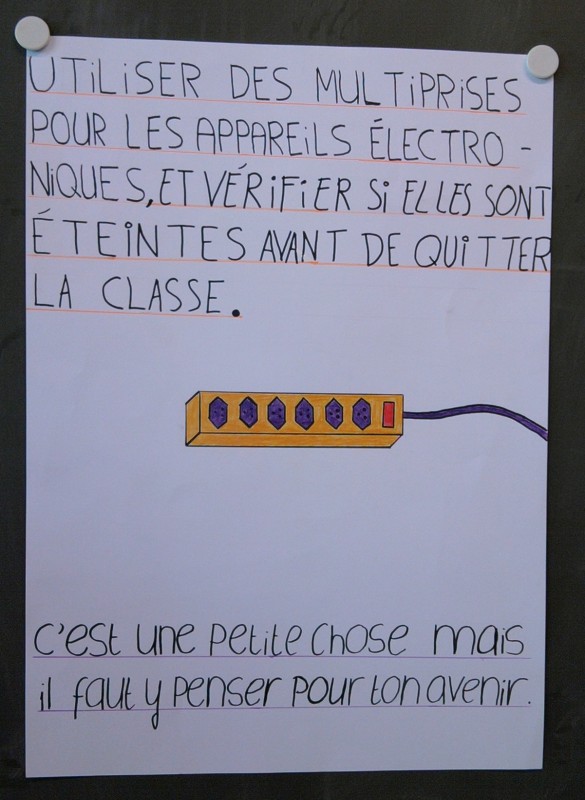 UTiLiSER DES MULTiPRiSES
POUR LES APPAREiLS ÉLECTRO -
NiQUES, ET VÉRiFiER Si ELLES SONT
ÉTEiNTES AVANT DE QUiTTER
LA CLASSE.
c'est une petite chose mais
il faut y penser pour ton avenir.